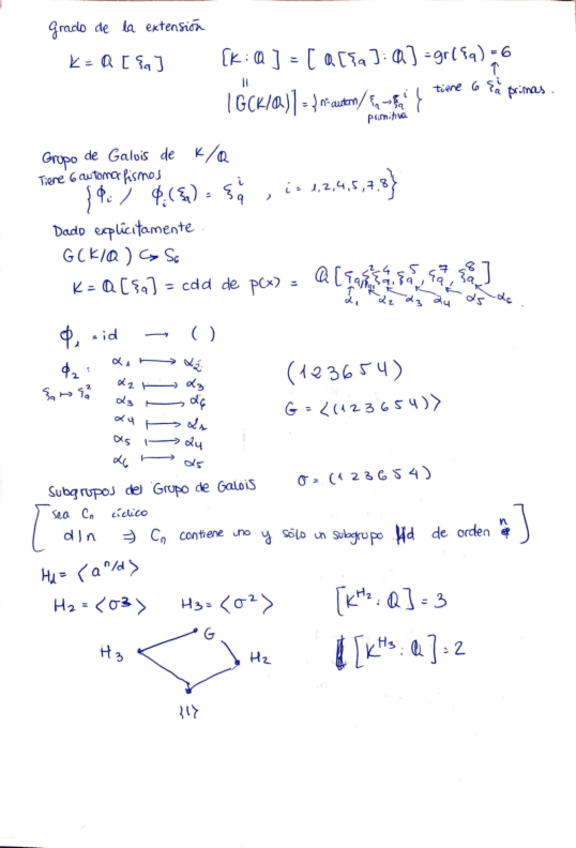 Grado de la extensión
K = Q [ξ₉] [K : Q] = [ Q[ξ₉] : Q] = gr(ξ₉) = 6
|G(K/Q)| = {nº autom / ξ₉ → ξ₉ⁱ primitiva} tiene 6 ξ₉ⁱ primas.
Grupo de Galois de K/Q
Tiene 6 automorfismos
{ϕᵢ / ϕᵢ(ξ₉) = ξ₉ⁱ , i = 1,2,4,5,7,8}
Dado explícitamente
G(K/Q) ↪ S₆
K = Q[ξ₉] = cdd de p(x) = Q[ξ₉, ξ₉², ξ₉⁴, ξ₉⁵, ξ₉⁷, ξ₉⁸]
α₁ α₂ α₃ α₄ α₅ α₆
ϕ₁ = id → ( )
ϕ₂ : α₁ ↦ α₂
ξ₉ ↦ ξ₉² α₂ ↦ α₃
α₃ ↦ α₆
α₄ ↦ α₁
α₅ ↦ α₄
α₆ ↦ α₅
(1 2 3 6 5 4)
G = <(1 2 3 6 5 4)>
Subgrupos del Grupo de Galois σ = (1 2 3 6 5 4)
[sea Cₙ cíclico
d|n ⇒ Cₙ contiene uno y sólo un subgrupo Hd de orden]
Hd = <a^n/d>
H₂ = <σ³> H₃ = <σ²> [K^H₂ : Q] = 3
G
H₃ H₂ [K^H₃ : Q] = 2
{1}